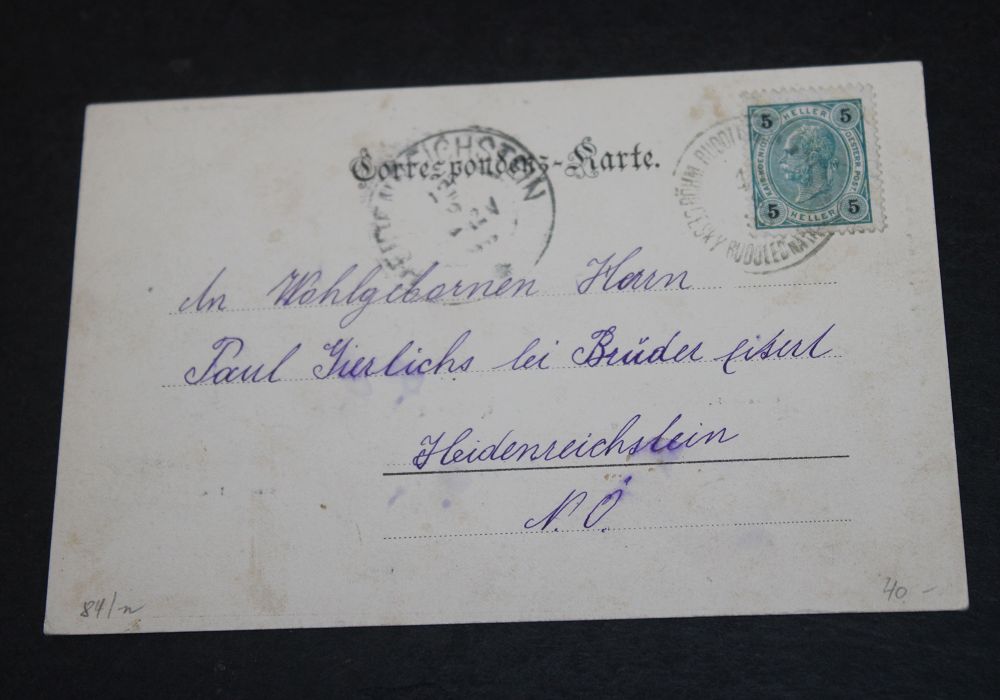 Correspondenz-Karte.
5 HELLER 5
KAIS. KOENIGL. OESTERR. POST
5 HELLER 5
BÖHM. RUDOLE
ČESKÝ RUDOLEC NA
HEIDENREICHSTEIN
An Wohlgebornen Herrn
Paul Gierlichs bei Brüder Eisert
Heidenreichstein
N. Ö.
84/n
40.-